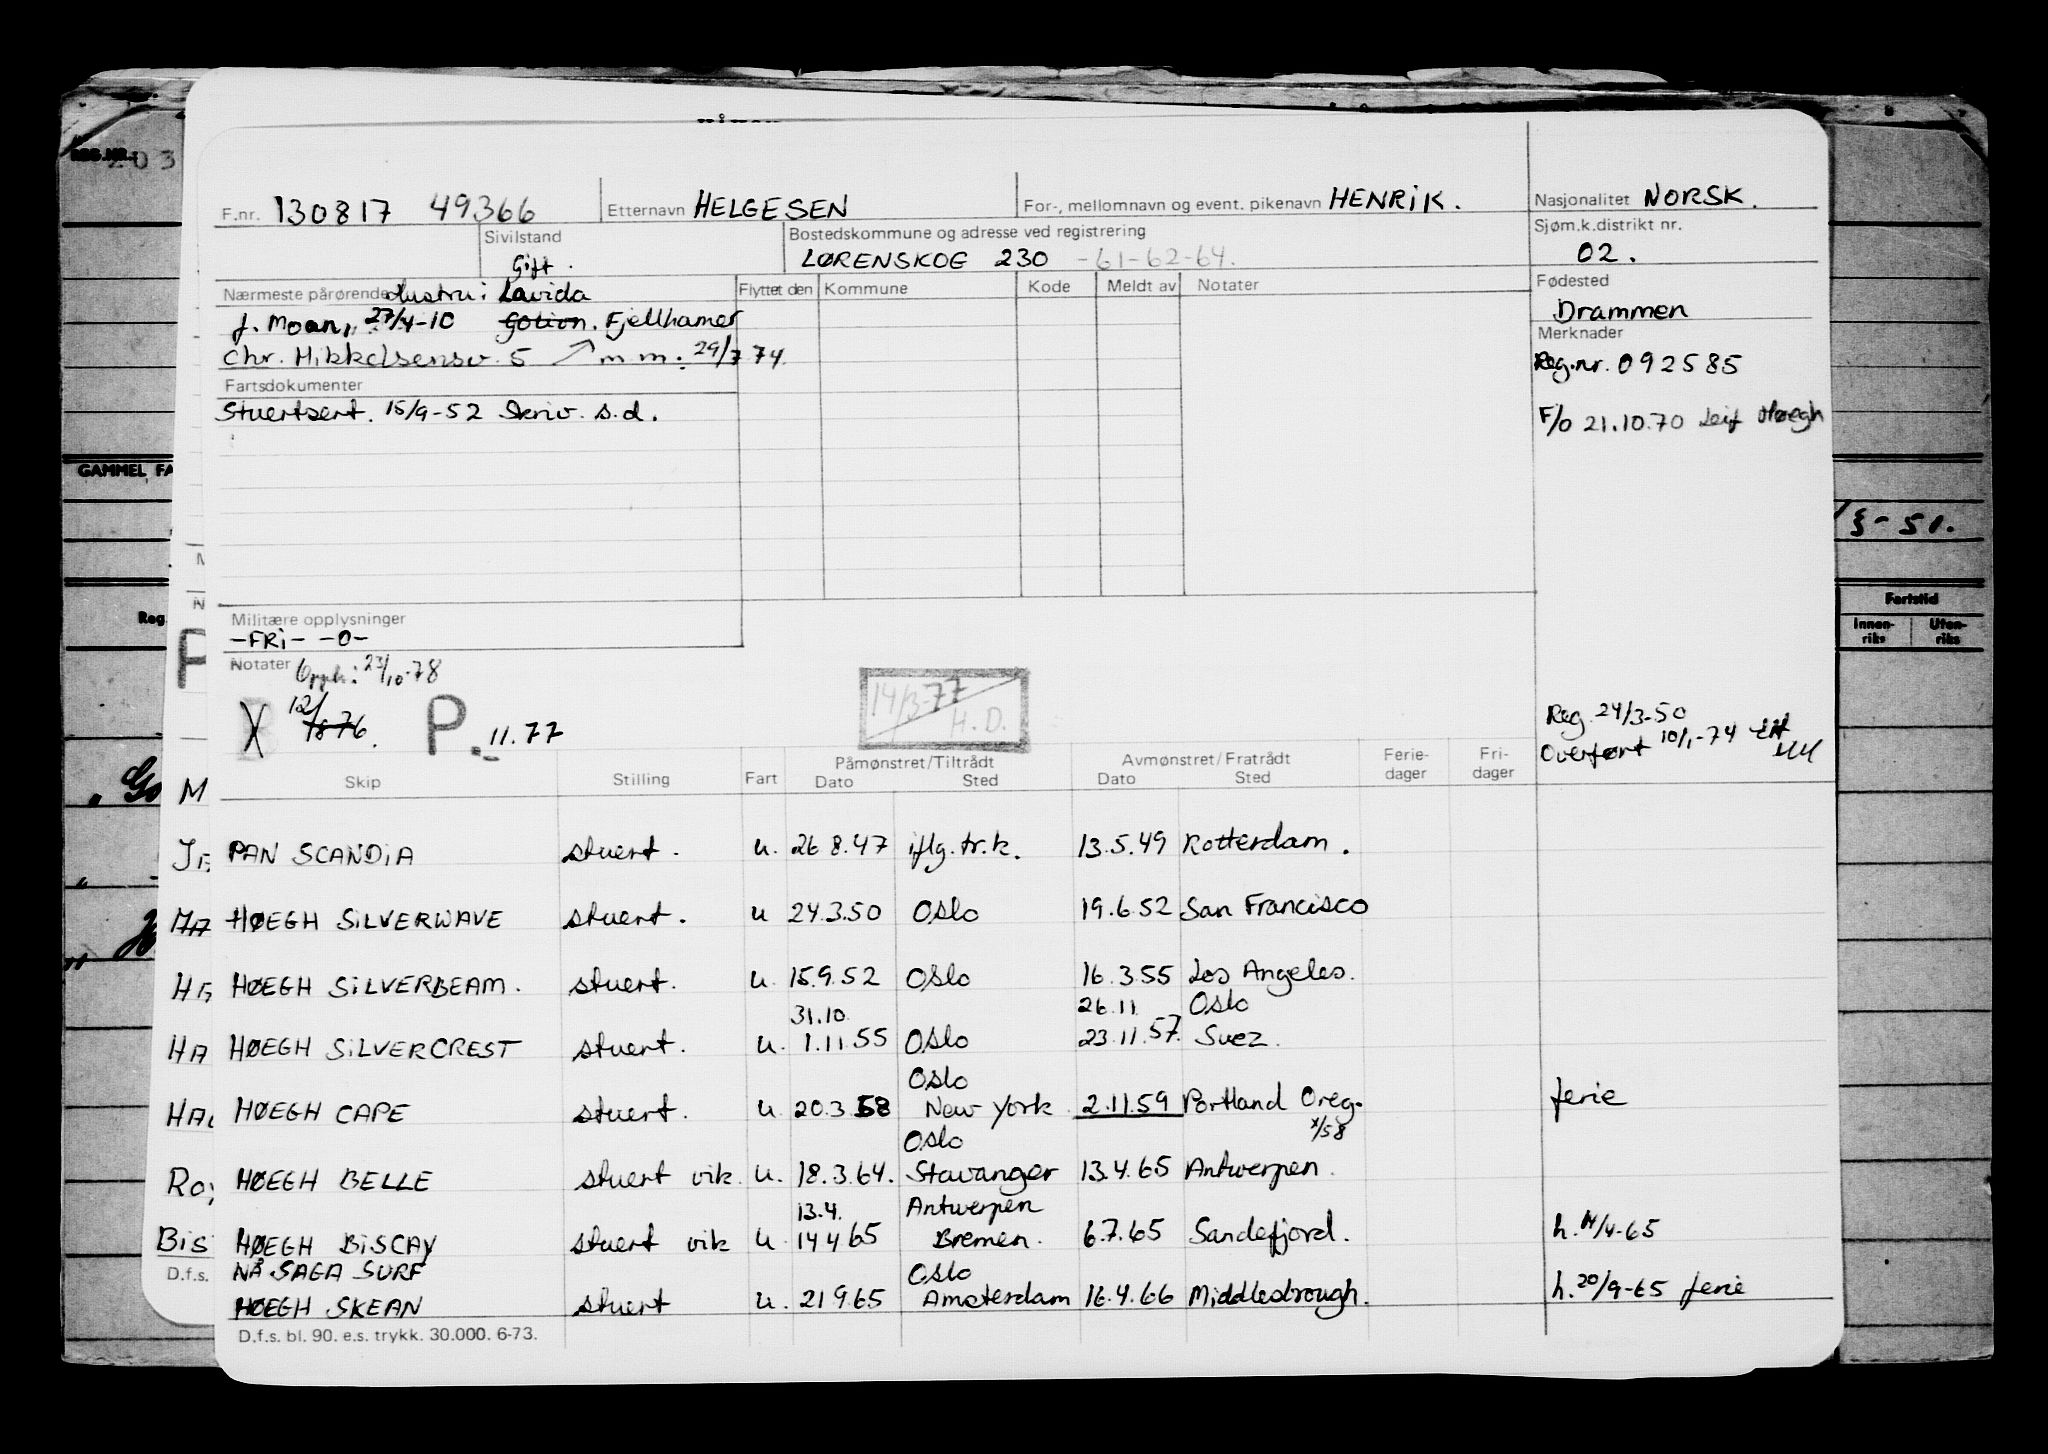 REG.NR.: 203
F.nr. 130817 49366 Etternavn HELGESEN For-, mellomnavn og event. pikenavn HENRIK. Nasjonalitet NORSK.
Sivilstand Gift. Bostedskommune og adresse ved registrering LØRENSKOG 230 -61-62-64. Sjøm.k.distrikt nr. 02.
Nærmeste pårørende Hustru: Lovida Flyttet den Kommune Kode Meldt av Notater Fødested
f. Moan, 27/4-10 Fjellhamer Drammen
Chr. Mikkelsensv. 5 m m. 29/7 74. Merknader
Fartsdokumenter Reg.nr. 092585
Stuertsert. 15/9-52 Skriv. s.d. F/o 21.10.70 Leif Høegh
GAMMEL FA
/3-51.
Fartstid
Innen-riks Uten-riks
Reg.
Militære opplysninger
-FRI- -0-
Notater Opph: 23/10-78
X 12/ 1876. P. 11.77
14/3-77
H.D.
Reg. 24/3-50
Overført 10/1-74
Skip Stilling Fart Påmønstret/Tiltrådt Dato Sted Avmønstret/Fratrådt Dato Sted Ferie-dager Fri-dager
PAN SCANDIA stuert. u. 26 8.47 iflg.tr.k. 13.5.49 Rotterdam.
HØEGH SILVERWAVE stuert. u 24.3.50 Oslo 19.6.52 San Francisco
HØEGH SILVERBEAM. stuert. u. 15.9.52 Oslo 16.3.55 Los Angeles.
31.10. 26.11. Oslo
HØEGH SILVERCREST stuert. u. 1.11.55 Oslo 23.11.57. Suez.
Oslo
HØEGH CAPE stuert. u. 20.3.58 New York 2.11.59 Portland Oreg. ferie
Oslo x/58
HØEGH BELLE stuert vik. u. 18.3.64. Stavanger 13.4.65 Antwerpen.
13.4. Antwerpen
HØEGH BISCAY stuert vik u. 14 4 65 Bremen. 6.7.65 Sandefjord. h. 14/4-65
NÅ SAGA SURF Oslo
HØEGH SKEAN stuert u. 21 9.65 Amsterdam 16.4.66 Middlesbrough. h. 20/9-65 ferie
D.f.s.
D.f.s. bl. 90. e.s. trykk. 30.000. 6-73.